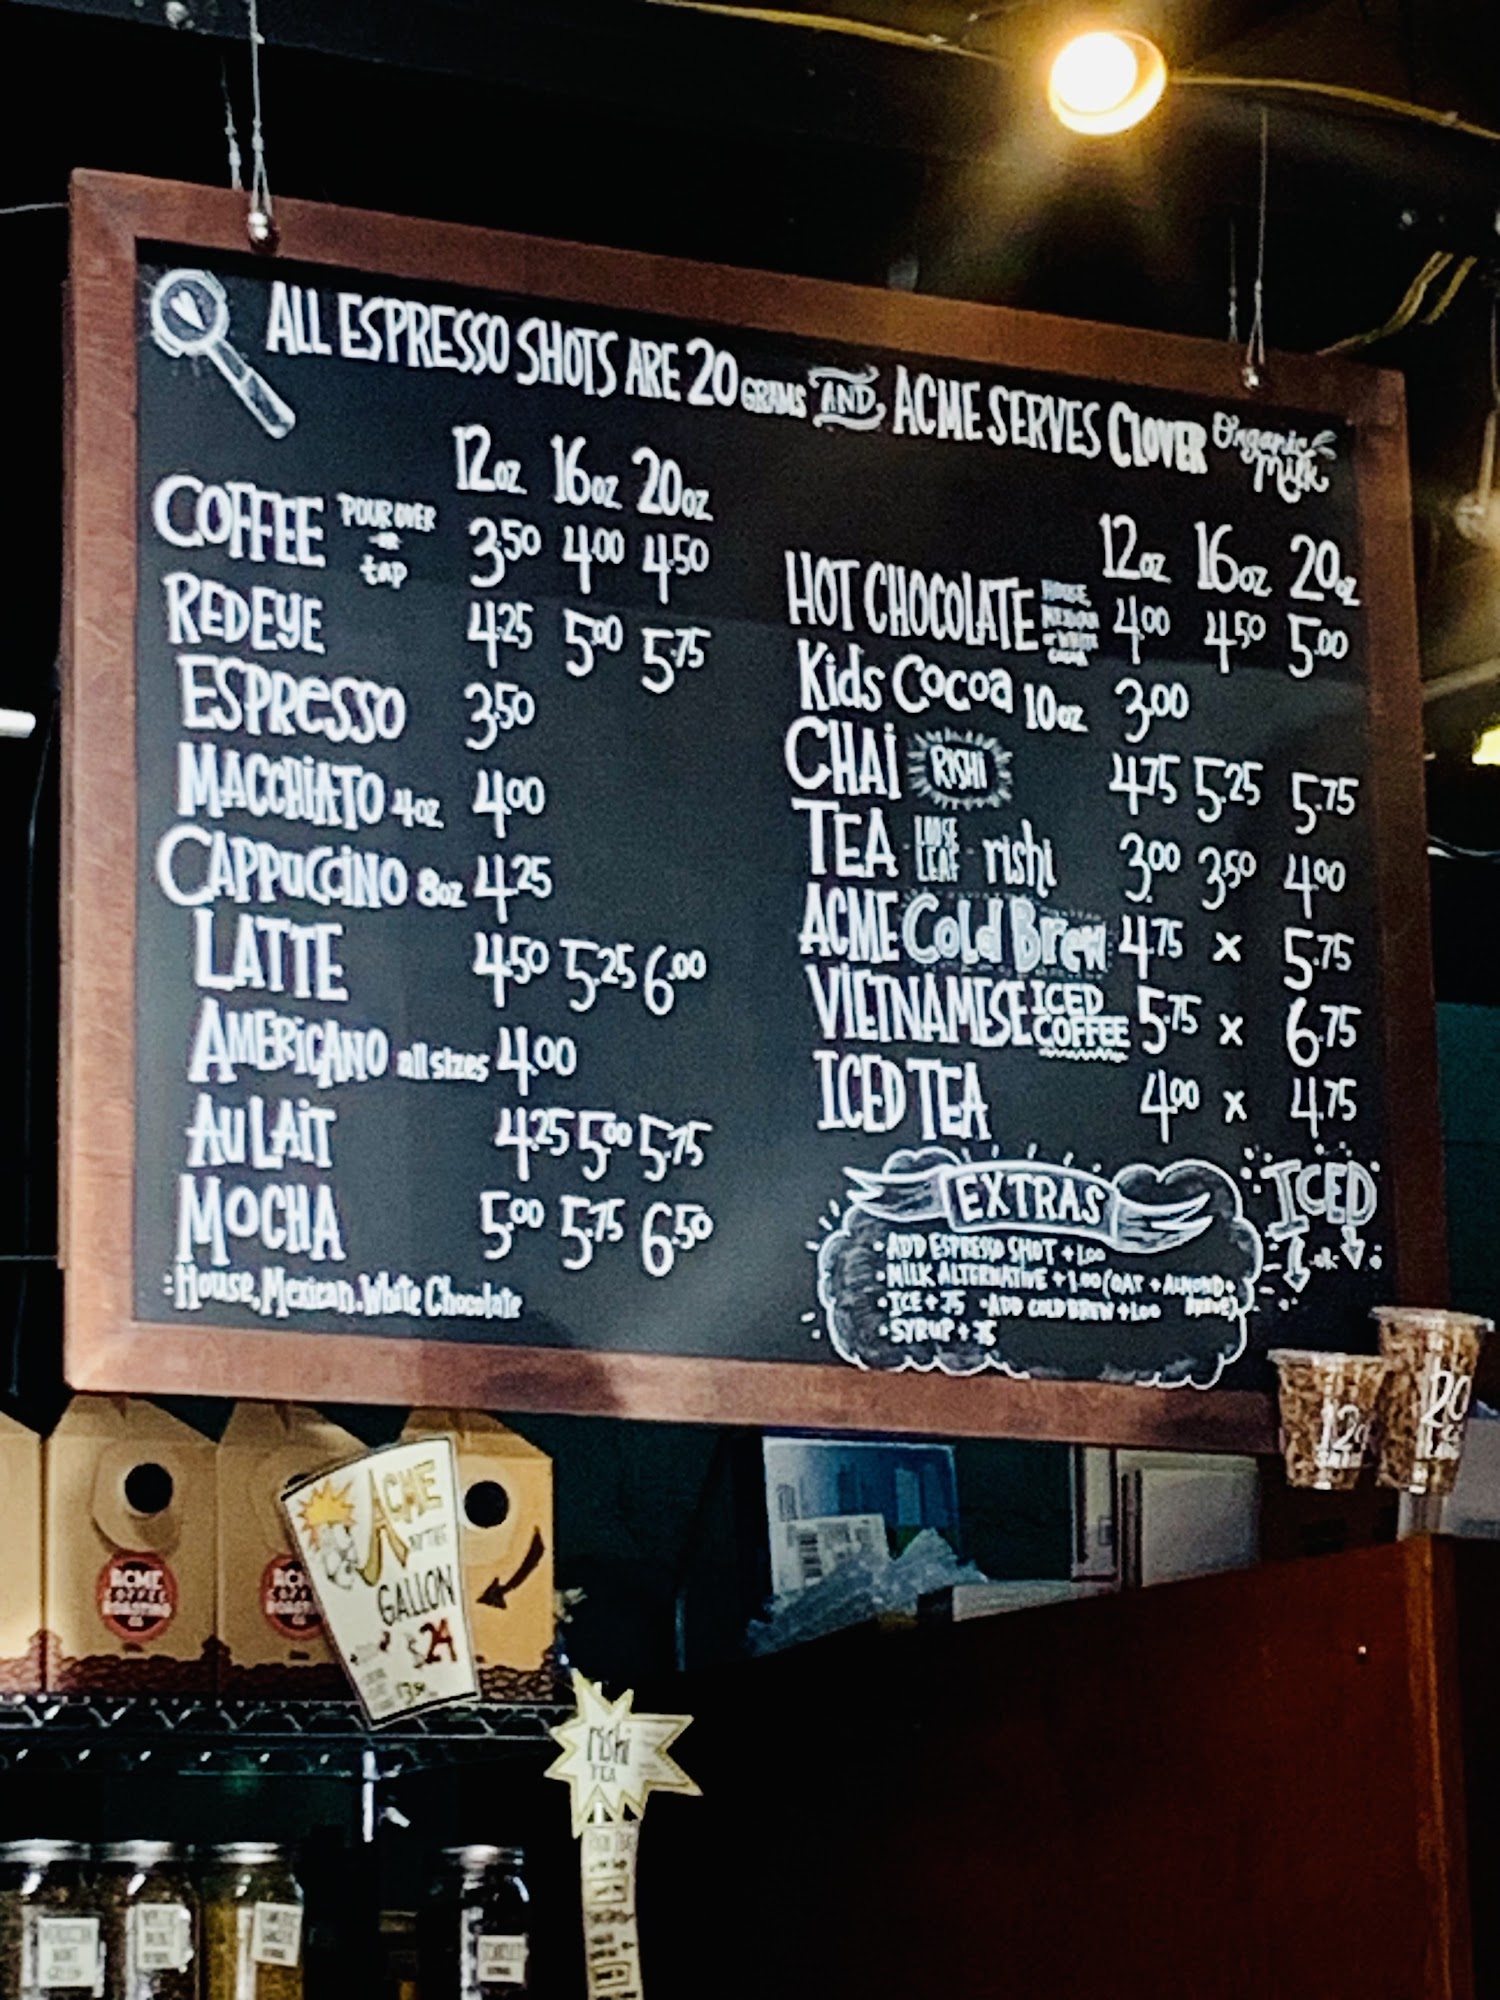 ALL ESPRESSO SHOTS ARE 20 GRAMS AND ACME SERVES CLOVER Organic Milk
12oz 16oz 20oz
COFFEE POUR OVER OR tap 3.50 4.00 4.50
REDEYE 4.25 5.00 5.75
ESPRESSO 3.50
MACCHIATO 4oz 4.00
CAPPUCCINO 8oz 4.25
LATTE 4.50 5.25 6.00
AMERICANO all sizes 4.00
AU LAIT 4.25 5.00 5.75
MOCHA 5.00 5.75 6.50
House, Mexican, White Chocolate
12oz 16oz 20oz
HOT CHOCOLATE HOUSE, MEXICAN or WHITE 4.00 4.50 5.00
Kids Cocoa 10oz 3.00
CHAI RISHI 4.75 5.25 5.75
TEA - LOOSE LEAF - rishi 3.00 3.50 4.00
ACME Cold Brew 4.75 x 5.75
VIETNAMESE ICED COFFEE 5.75 x 6.75
ICED TEA 4.00 x 4.75
EXTRAS
• ADD ESPRESSO SHOT + 1.00
• MILK ALTERNATIVE + 1.00 (OAT + ALMOND +
• ICE + .75 • ADD COLD BREW + 1.00
• SYRUP + .75
ICED
or
12oz
20
ACME
COFFEE
ROASTING
CO
ACME
BY THE
GALLON
$24
rishi
TEA